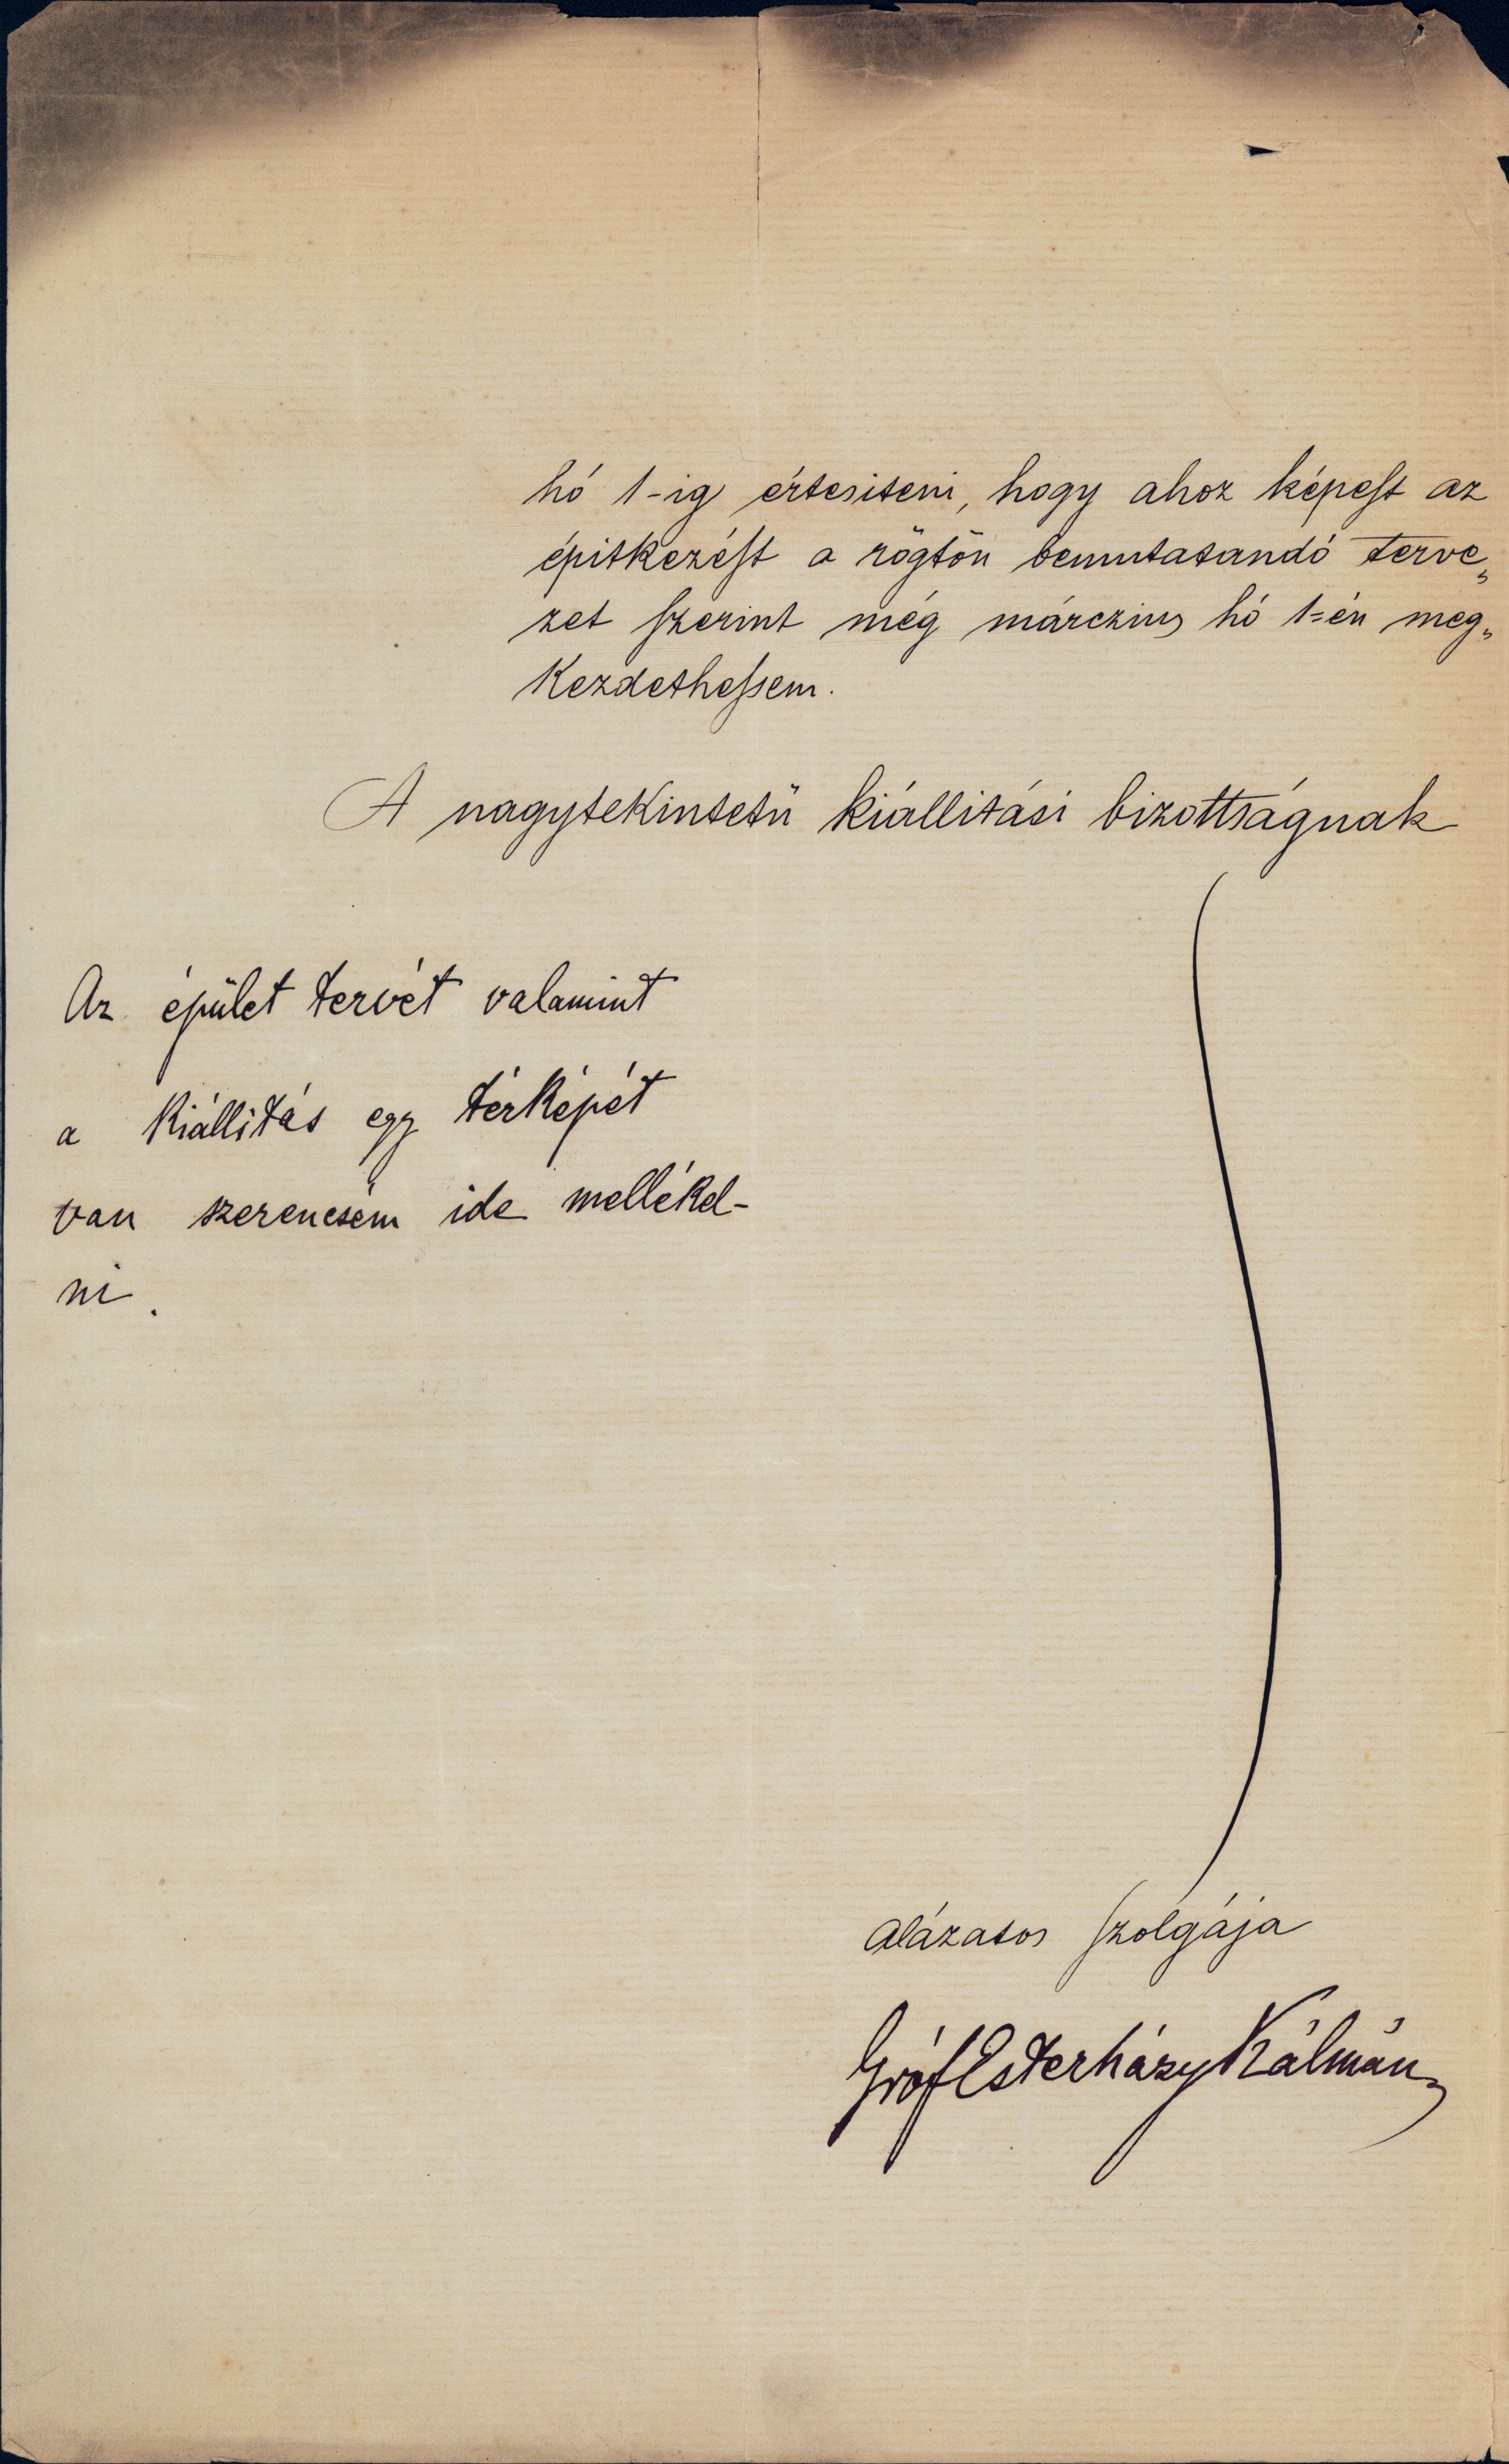 hó 1-ig értesiteni, hogy ahoz képest az
épitkezést a rögtön bemutatandó terve„
zet szerint még márczius hó 1-én meg„
kezdethessem.
A nagytekintetü kiállitási bizottságnak
Az épület tervét valamint
a kiállitás egy térképét
van szerencsém ide mellékel-
ni.
alázatos szolgája
Gróf Esterházy Kálmán